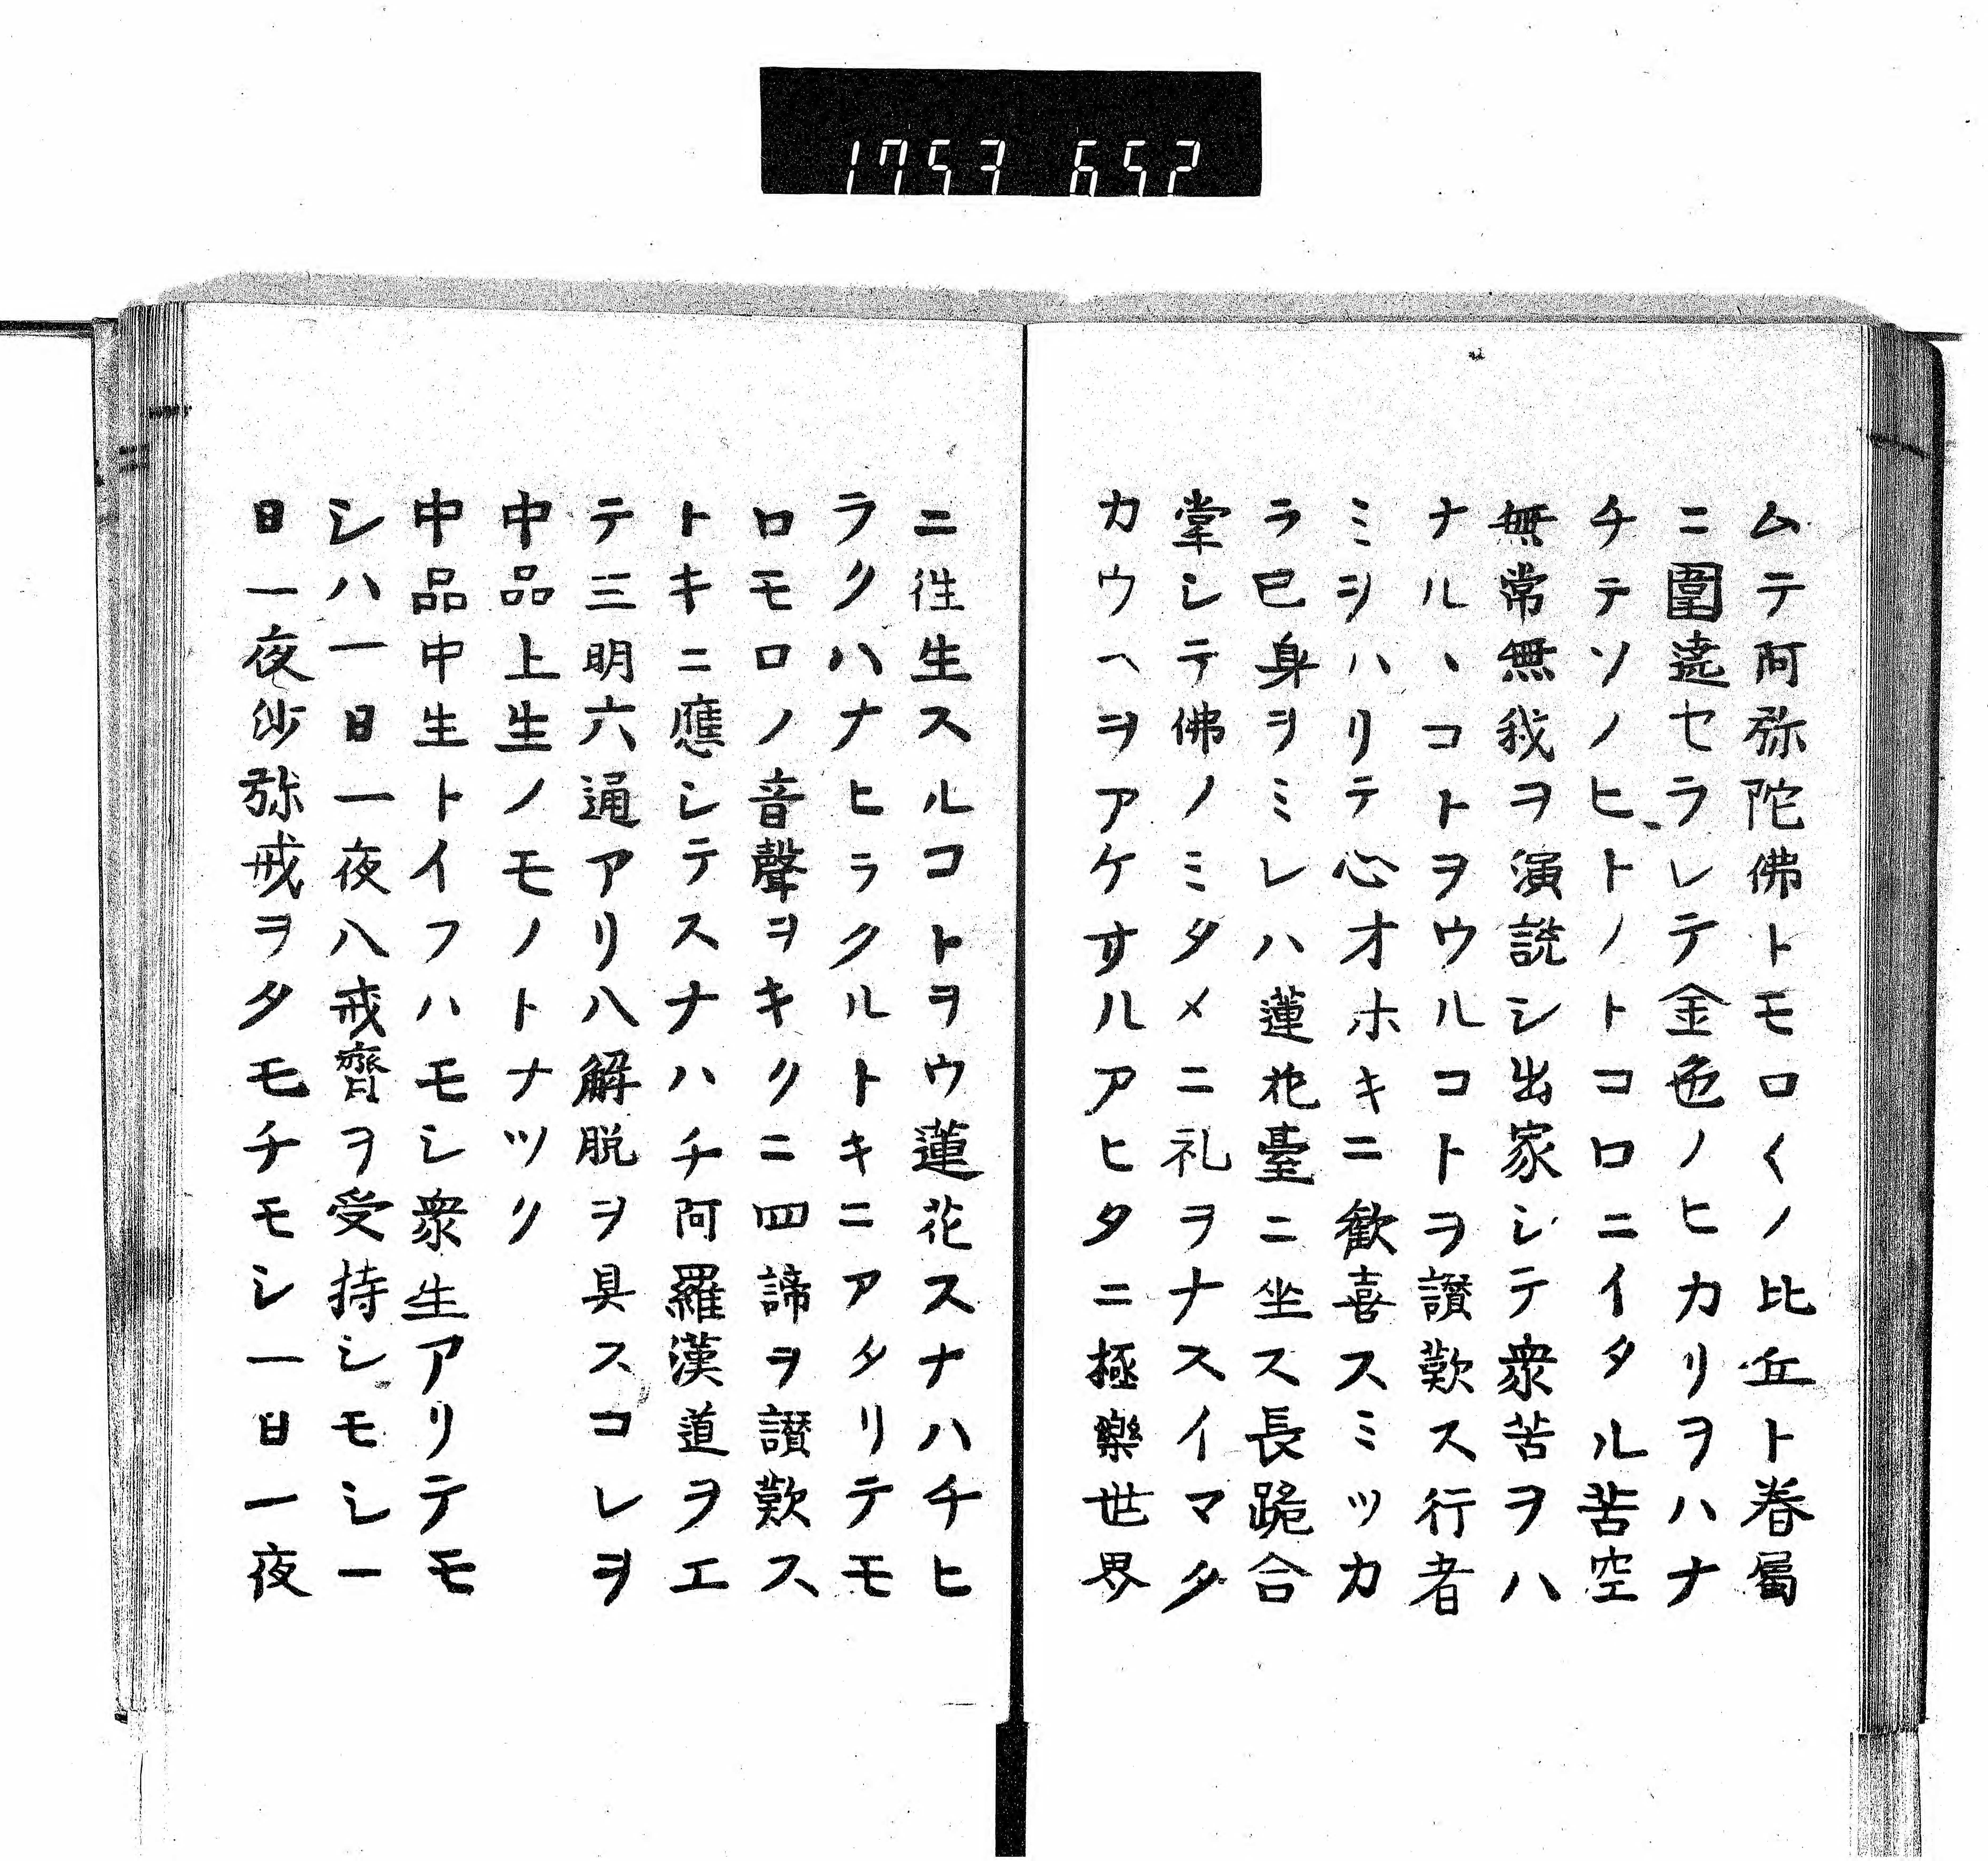 1753 652
ムテ阿弥陀佛トモロ〳〵ノ比丘ト眷属
ニ圍遶セラレテ金色ノヒカリヲハナ
チテソノヒトノトコロニイタル苦空
無常無我ヲ演説シ出家シテ衆苦ヲハ
ナルヽコトヲウルコトヲ讃歎ス行者
ミヲハリテ心オホキニ歓喜スミツカ
ラ已身ヲミレハ蓮花臺ニ坐ス長跪合
掌シテ佛ノミタメニ礼ヲナスイマタ
カウヘヲアケサルアヒタニ極樂世界
ニ往生スルコトヲウ蓮花スナハチヒ
ラクハナヒラクルトキニアタリテモ
ロモロノ音聲ヲキクニ四諦ヲ讃歎ス
トキニ應シテスナハチ阿羅漢道ヲエ
テ三明六通アリ八解脱ヲ具スコレヲ
中品上生ノモノトナツク
中品中生トイフハモシ衆生アリテモ
シハ一日一夜八戒齊ヲ受持シモシ一
日一夜沙弥戒ヲタモチモシ一日一夜